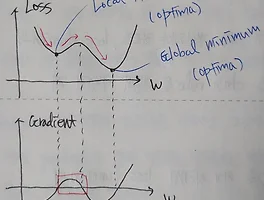 Loss
Local
(optima)
Global minimum
(optima)
W
Gradient
W